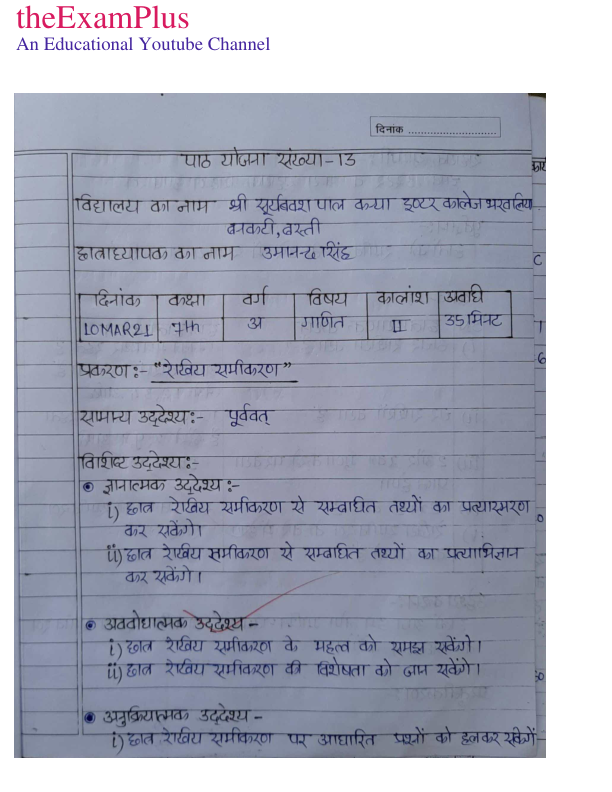 theExamPlus
An Educational Youtube Channel
दिनांक
पाठ योजना संख्या-13
विद्यालय का नाम श्री सूर्यबक्श पाल कन्या इण्टर कालेज
बनकटी, बस्ती
छात्राध्यापक का नाम उमानन्द सिंह
दिनांक कक्षा वर्ग विषय कालांश अवधि
10MAR21 7th अ गणित II 35 मिनट
प्रकरण:- "रेखिय समीकरण"
सामान्य उद्देश्य:- पूर्ववत्
विशिष्ट उद्देश्य:-
ज्ञानात्मक उद्देश्य:-
i) छात्र रेखिय समीकरण से सम्बधित तथ्यों का प्रत्यास्मरण
कर सकेंगे।
ii) छात्र रेखिय समीकरण से सम्बधित तथ्यों का प्रत्याभिज्ञान
कर सकेंगे।
अवबोधात्मक उद्देश्य-
i) छात्र रेखिय समीकरण के महत्व को समझ सकेंगे।
ii) छात्र रेखिय समीकरण की विशेषता को जान सकेंगे।
अनुक्रियात्मक उद्देश्य-
i) छात्र रेखिय समीकरण पर आधारित प्रश्नों को हलकर सकेंगें